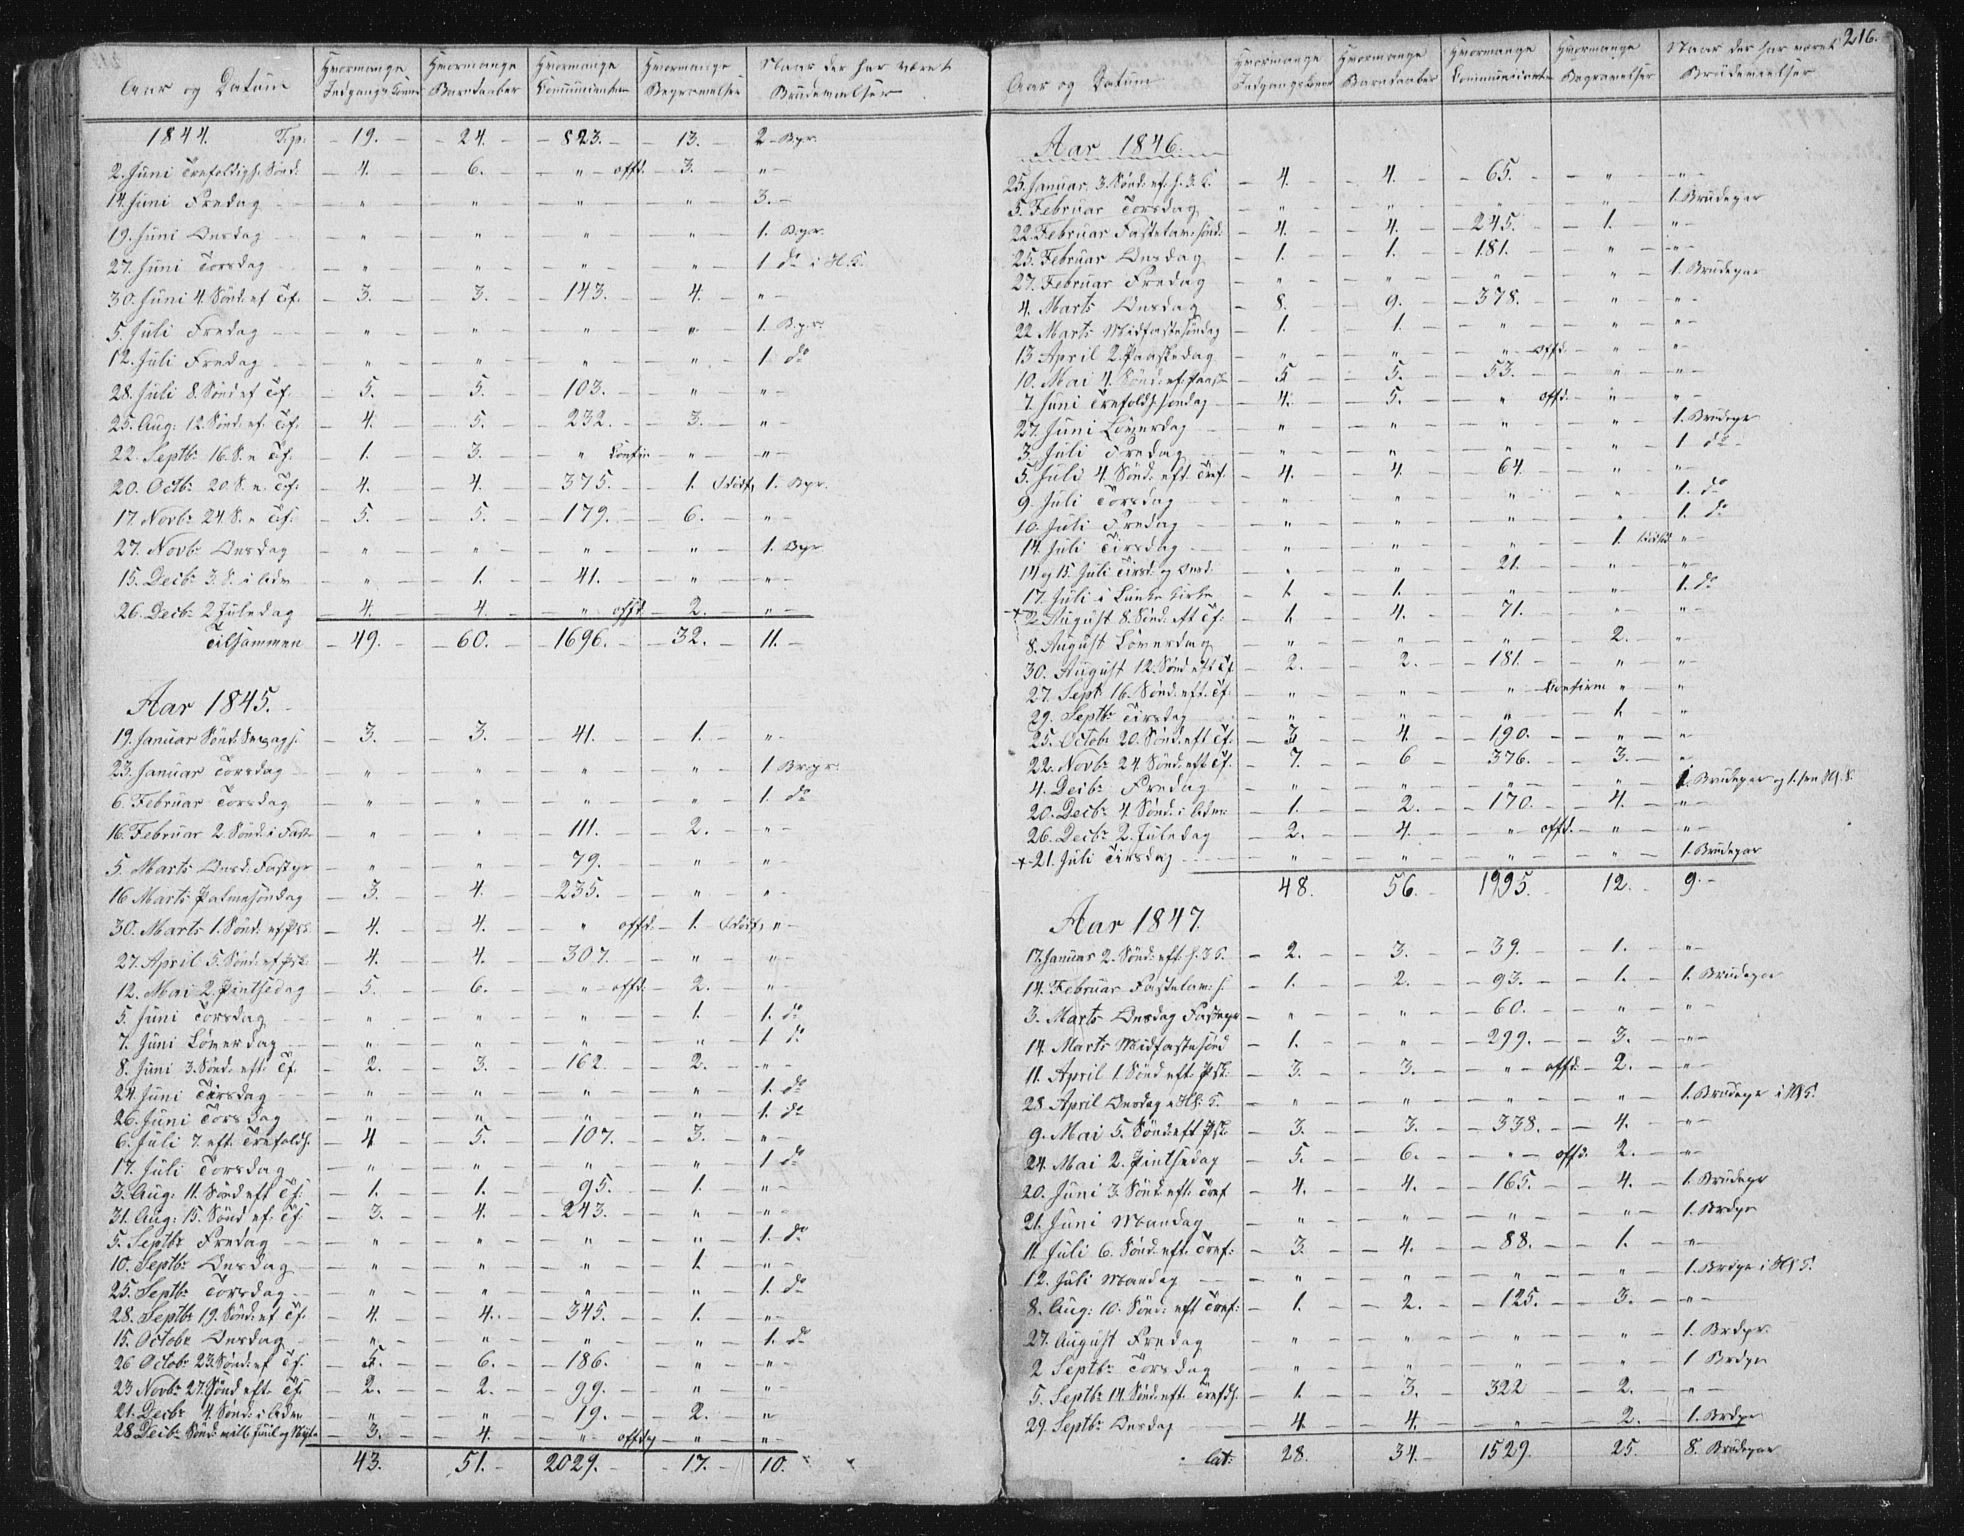 Aar og Datum Hvormange Indgangskoner Hvormange Barndaaber Hvormange Communicanter Hvormange Begravelser Naar der har været Brudevielser
1844. Tsp: 19. 24. 823. 13. 2 Bpr.
2. Juni Trefoldigh. Sönd: 4. 6. " offd. 3. "
14. Juni Fredag " " " " 3.
19. Juni Onsdag " " " " 1. Bpr.
27. Juni Torsdag " " " " 1 do i H. 5.
30. Juni 4. Sönd. ef Tf. 3. 3. 143. 4. "
5. Juli Fredag " " " " 1. Bpr.
12. Juli Fredag " " " " 1. do
28. Juli 8. Sönd ef Tf. 5. 5. 103. " "
25. Aug: 12. Sönd. ef. Tf. 4. 5. 232. 3. "
22. Septbr 16. S. e Tf. 1. 3. " Confir " "
20. Octbr 20. S. e. Tf: 4. 4. 375. 1. 1. Bpr.
17. Novbr 24. S. e Tf: 5. 5. 179. 6. "
27. Novbr Onsdag " " " " 1. Bpr
15. Decbr 3. S. i Adv " 1. 41. " "
26. Decbr 2 Juledag 4. 4. " offd 2. "
Tilsammen 49. 60. 1696. 32. 11.
Aar 1845.
19. Januar Sönd. 3. 3. 41. 1. "
23. Januar Torsdag " " " " 1 Brpr.
6. Februar Torsdag " " " " 1. do
16. Februar 2. Sönd. i Fast " " 111. 2. "
5. Marts Onsd. Fastpr " " 79. " "
16 Marts Palmesöndag 3. 4. 235. " "
30. Marts 1. Sönd. ef Psk 4. 4. " offd. 1. "
27. April 5. Sönd. ef Psk. 4. 4. 307. " "
12. Mai 2. Pintsedag 5. 6. " offd. 2. "
5. Juni Torsdag " " " 1. 1. do
7. Juni Löverdag " " " " 1 do
8. Juni 3. Sönd. eft. Tf. 2. 3. 162. 2. "
24. Juni Tirsdag " " " " 1. do
26. Juni Torsdag " " " " 1. do
6. Juli 7. eft. Trefoldh. 4 5. 107. 3. "
17. Juli Torsdag " " " " 1 do
3. Aug: 11. Sönd eft Tf: 1. 1. 95. 1. "
31. Aug: 15. Sönd ef. Tf. 3. 4. 243. " "
5. Septbr Fredag " " " " 1. do
10. Septbr Onsdag " " " 1. "
25. Septbr Torsdag " " " " 1. do
28. Septbr 19. Sönd. ef Tf. 4. 4. 345. 1. "
15. Octobr Onsdag " " " " 1. do
26 Octobr 23. Sönd. ef Tf. 5. 6. 186. " "
23 Novbr 27. Sönd eft. Tf. 2. 2. 99. " "
21. Decbr 4. Sönd. i Adv " " 19. 2. "
28 Decbr Sönd. mill. Juul og Nyt 3. 4. " offdg " "
43. 51. 2029. 17. 10.
216.
Aar og Datum Hvormange Indgangskoner Hvormange Barndaaber Hvormange Communicanter Hvormange Begravelser Naar der har været Brudevielser
Aar 1846.
25. Januar. 3. Sönd. ef. h. 3. K. 4. 4. 65. " "
5. Februar Torsdag " " " " 1. Brudepar
22. Februar Fastelav. sönd: 4. 4. 245. 1. "
25. Februar Onsdag 1. 1. 181. " "
27. Februar Fredag " " " " 1. Brudepar
4. Marts Onsdag 8. 9. 378. " "
22. Marts Midfastesöndag 1. 1. " " "
13. April 2. Paaskedag " " " Offd. " "
10. Mai 4. Sönd. ef. Paask 5 5. 53. " "
7. Juni Trefoldh. söndag 4. 5. " offd. " "
27. Juni Löverdag " " " " 1. Brudepr
3. Juli Fredag " " " " 1 do
5. Juli 4. Sönd. eft Tref. 4. 4. 64. " "
9. Juli Torsdag " " " " 1. do
10. Juli Fredag " " " " 1. do
14. Juli Tirsdag " " " 1. "
14 og 15. Juli Tirsd. og Onsd. " " 21. " "
17. Juli i Kirke 1. 1. " " 1. do
+ 2. August 8. Sönd. eft Tf: 1. 4. 71. " "
8. August Löverdag " " " 2. "
30. August 12. Sönd eft Tf. 2. 2. 181. " "
27. Sept. 16. Sönd. eft. Tf. " " " Confirm " "
29. Septbr Tirsdag " " " 1. "
25. Octobr 20. Sönd. eft Tf. 3 4. 190. " "
22. Novbr 24 Sönd. eft Tf. 7. 6 376. 3. "
4. Decbr Fredag " " " " 1. Brudepar og 1. 
20. Decbr 4 Sönd. i Adv. 1. 2. 170. 4. "
26. Decbr 2. Juledag 2. 4. " offd. " "
+ 21. Juli Tirsdag " " " " 1. Brudepar
48. 56. 1995. 12. 9.
Aar 1847.
17. Januar 2. Sönd. eft. h. 3 K. 2. 3. 39. 1. "
14. Februar Fastelav. s. 1. 2. 93. 1. 1. Brudepar
3. Marts Onsdag Fastepr " " 60. " "
14. Marts Midfastesönd 1. " 299. 3. "
11. April 1. Sönd eft. Psk: 3. 3. " offd: 2. "
28. April Onsdag i H. 5. " " " " 1. Brudepr i H. 5.
9. Mai 5. Sönd. eft Psk. 3. 3. 338. 4. "
24. Mai 2. Pintsedag 5. 6. " offd. 2. "
20. Juni 3. Sönd. eft. Tref 4. 4. 165. 4. 1. Brudepr
21. Juni Mandag " " " " 1. Brdpr
11. Juli 6. Sönd. eft. Tref: 3. 4. 88. 1. "
12. Juli Mandag " " " " 1. Brdpr i H. 5.
8. Aug: 10. Sönd. eft Tref: 1. 2. 125. 3. "
27. August Fredag " " " " 1. Brdpr.
2 Septbr Torsdag " " " " 1 Brdpr
5. Septbr 14. Sönd. eft. Trefdh. 1. 3. 322 2. "
29. Septbr Onsdag 4. 4. " 2. 1. Brdpr
Lat: 28. 34. 1529. 25. 8. Brudepar